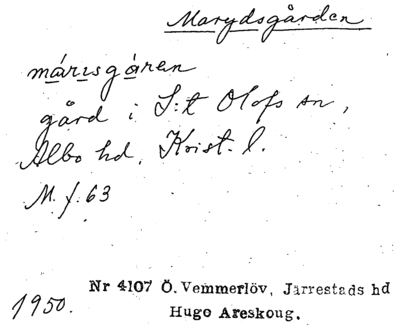 Marydsgården
márısgå̀ren
gård i S:t Olofs sn,
Albo hd, Krist. l.
M. f. 63
Nr 4107 Ö. Vemmerlöv, Järrestads hd
1950. Hugo Areskoug.